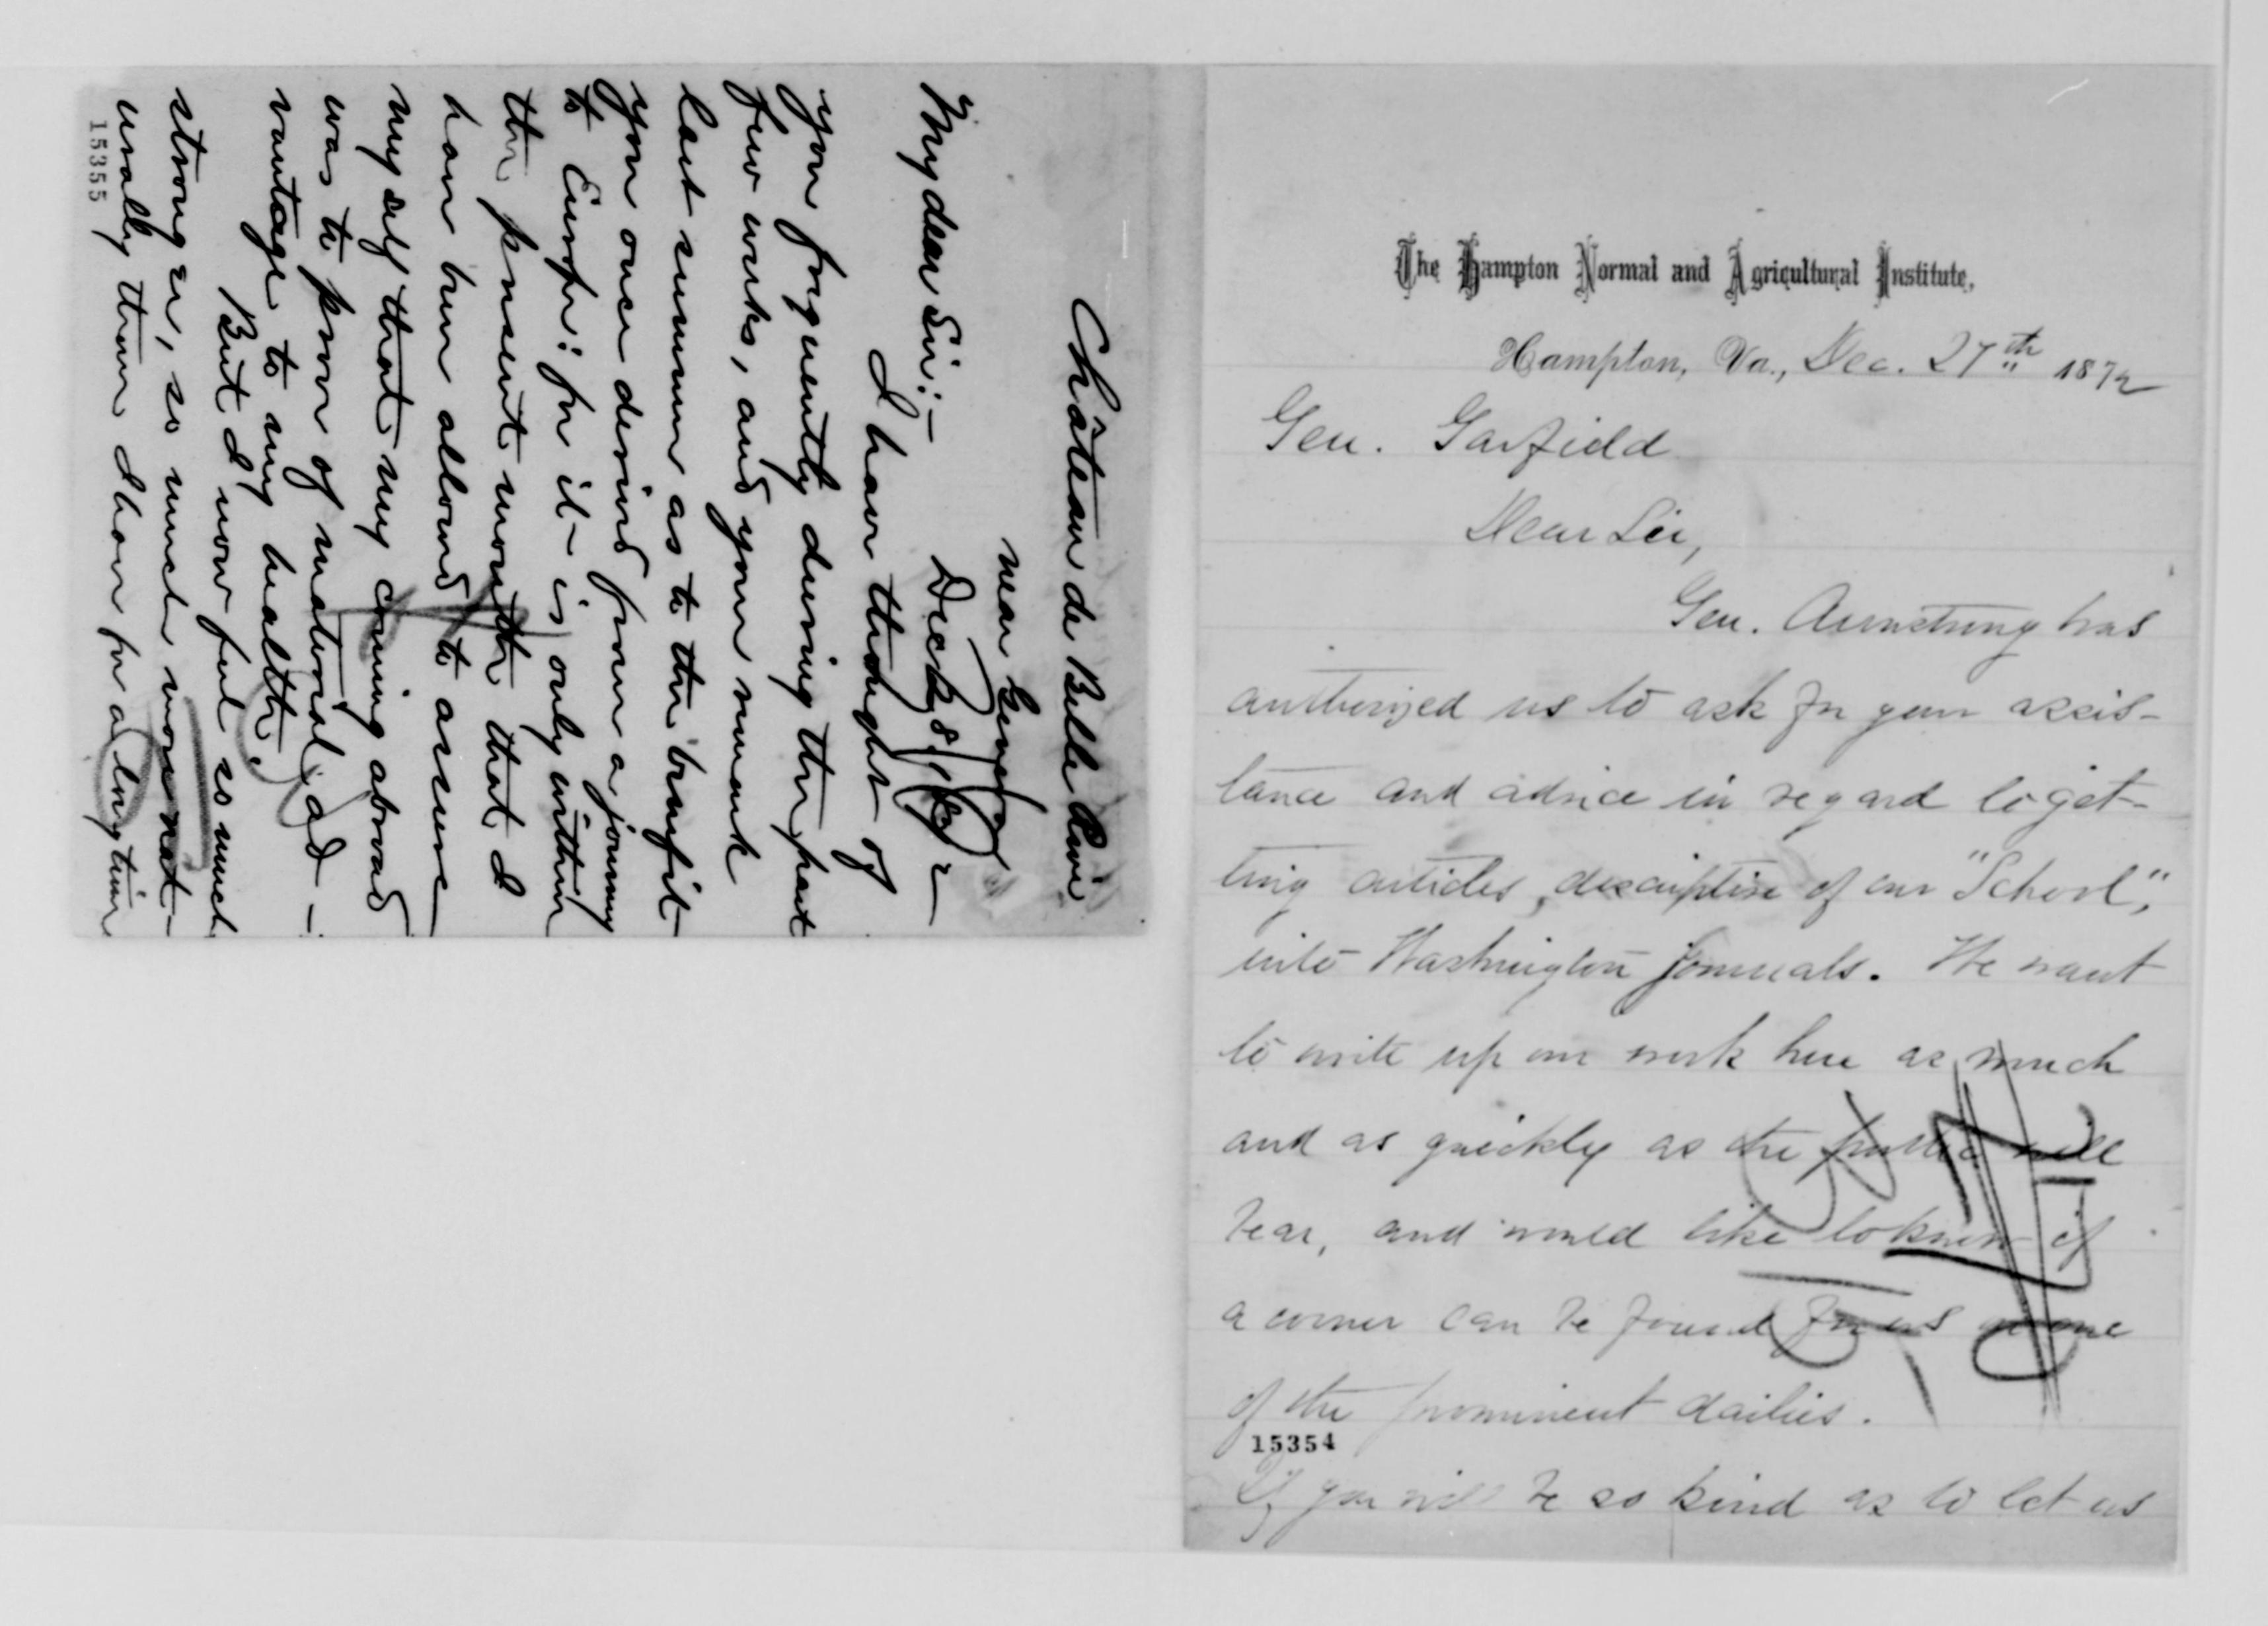 Château de Belle Rive
near Geneva
Dec 8/72
My dear Sir:—
I have thought of
you frequently during the past
few weeks, and your remark
last summer as to the benefit
you once derived from a journey
to Europe: for it is only within
the present month that I
have been allowed to assure
myself that my coming abroad
was to prove of material ad-
vantage to my health.
But I now feel so much
stronger, so much more nat-
urally than I have for a long time
15355
The Hampton Normal and Agricultural Institute,
Hampton, Va., Dec. 27th 1872
Gen. Garfield
Dear Sir,
Gen. Armstrong has
authorized us to ask for your assis-
tance and advice in regard to get-
ting articles, descriptive of our "School",
into Washington journals. We want
to write up our work here as much
and as quickly as the public will
bear, and would like to know if
a corner can be found for us in one
of the prominent dailies.
15354
If you will be so kind as to let us